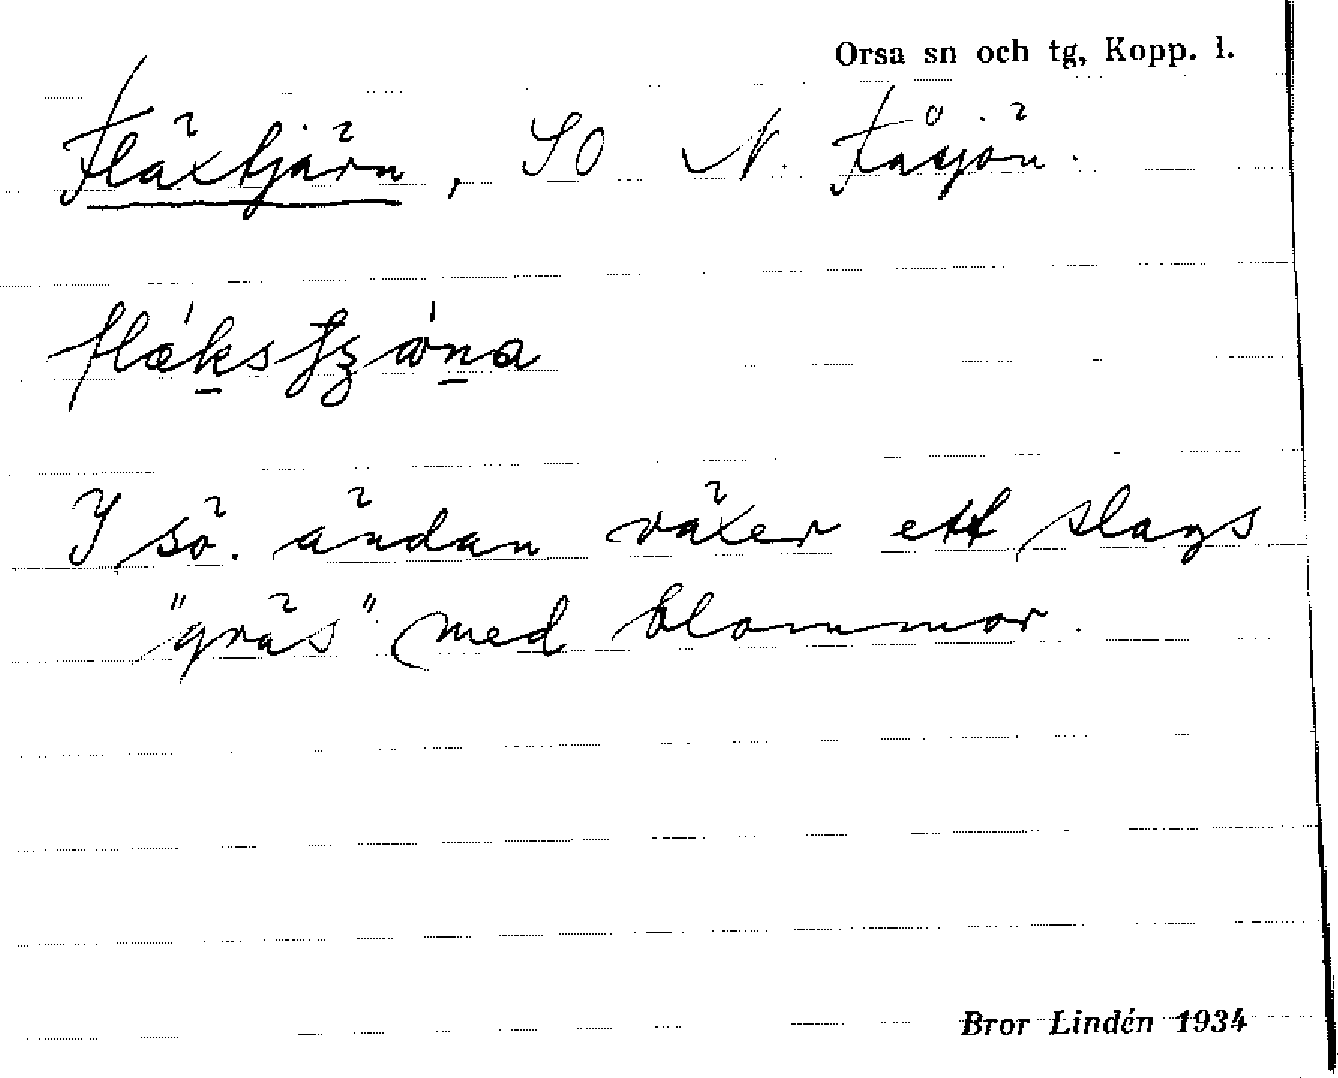 Orsa sn och tg, Kopp. l.
Fläxtjärn, SO N. Fåsjön.
I sö. ändan växer ett slags
"gräs" med blommor.
Bror Lindén 1934